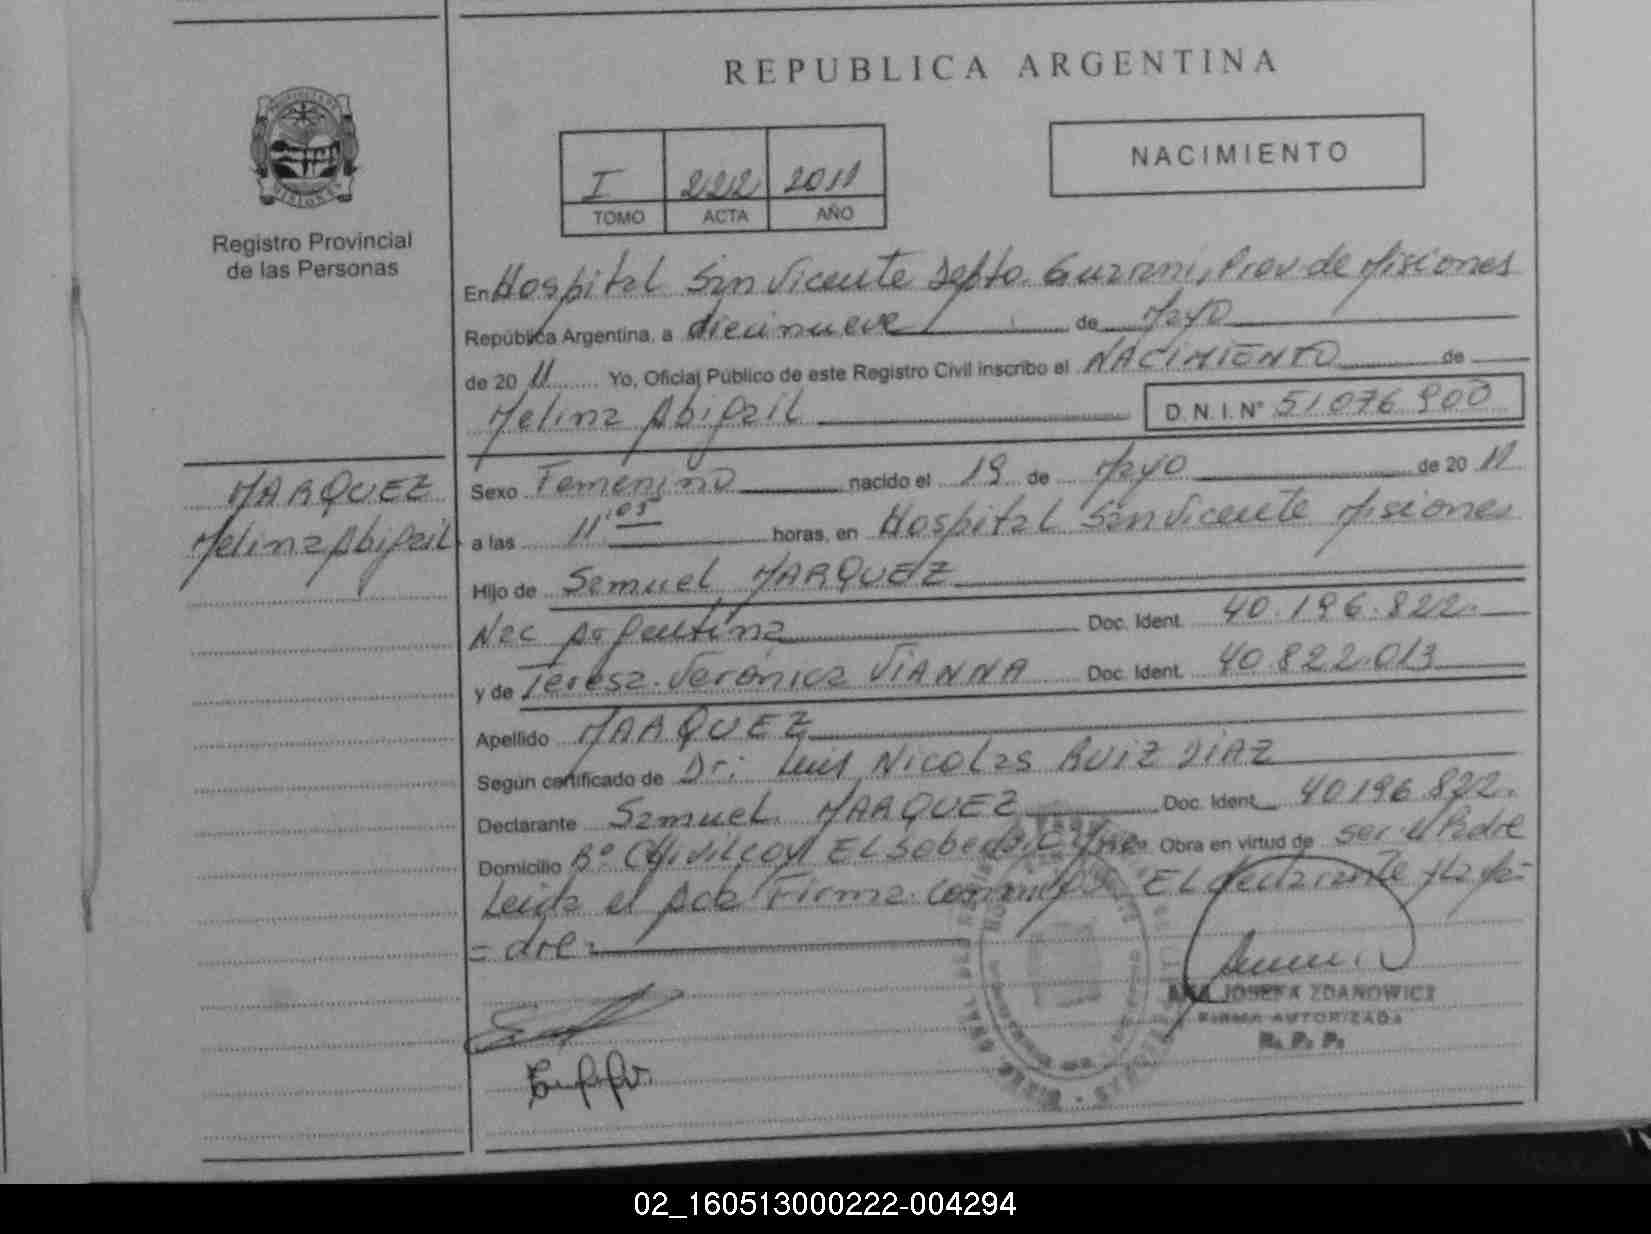 REPUBLICA ARGENTINA
NACIMIENTO
I 222 2011
TOMO ACTA AÑO
PROVINCIA DE
MISIONES
Registro Provincial
de las Personas
En Hospital San Vicente Depto. Guarani, Prov de Misiones
República Argentina, a diecinueve de Mayo
de 20 11 Yo, Oficial Público de este Registro Civil inscribo el NACIMIENTO de
Melina Abigail D.N.I. N° 51 076 900
MARQUEZ
Melina Abigail
Sexo Femenino nacido el 19 de Mayo de 20 11
a las 11:05 horas, en Hospital San Vicente Misiones
Hijo de Samuel MARQUEZ
Nac Argentina Doc. Ident. 40.196.822
y de Teresa Verónica VIANNA Doc. Ident. 40.822.013
Apellido MARQUEZ
Según certificado de Dr: Luis Nicolas RUIZ DIAZ
Declarante Samuel MARQUEZ Doc. Ident 40196.822.
Domicilio B° Chivilcoy EL Obra en virtud de ser el Padre
Leida el Acta Firma conmigo EL declarante y la ma=
=dre=
JOSEFA ZDANOWICZ
FIRMA AUTORIZADA
R. P. P.
02_160513000222-004294